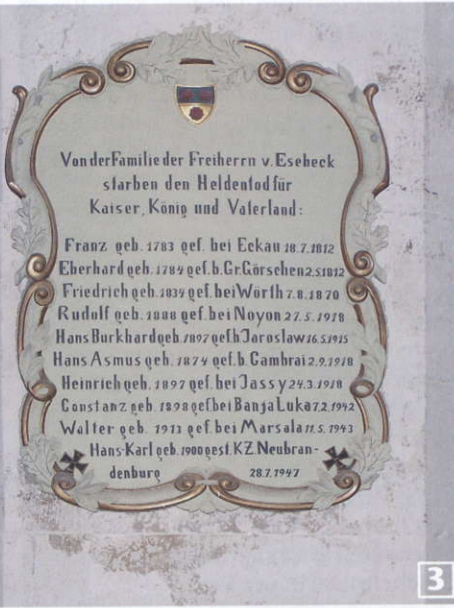 Von der Familie der Freiherrn v. Esebeck
starben den Heldentod für
Kaiser, König und Vaterland:
Franz geb. 1783 gef. bei Eckau 18.7.1812
Eberhard geb. 1784 gef. b. Gr. Görschen 2.5.1812
Friedrich geb. 1834 gef. bei Wörth 7.8.1870
Rudolf geb. 1888 gef. bei Noyon 27.5.1918
Hans Burkhard geb. 1897 gef. b. Jaroslaw 16.5.1915
Hans Asmus geb. 1874 gef. b. Cambrai 2.9.1918
Heinrich geb. 1897 gef. bei Jassy 24.3.1918
Constanz geb. 1898 gef. bei Banja Luka 7.2.1942
Walter geb. 1913 gef. bei Marsala 11.5.1943
Hans-Karl geb. 1900 gest. KZ. Neubran-
denburg 28.7.1947
3